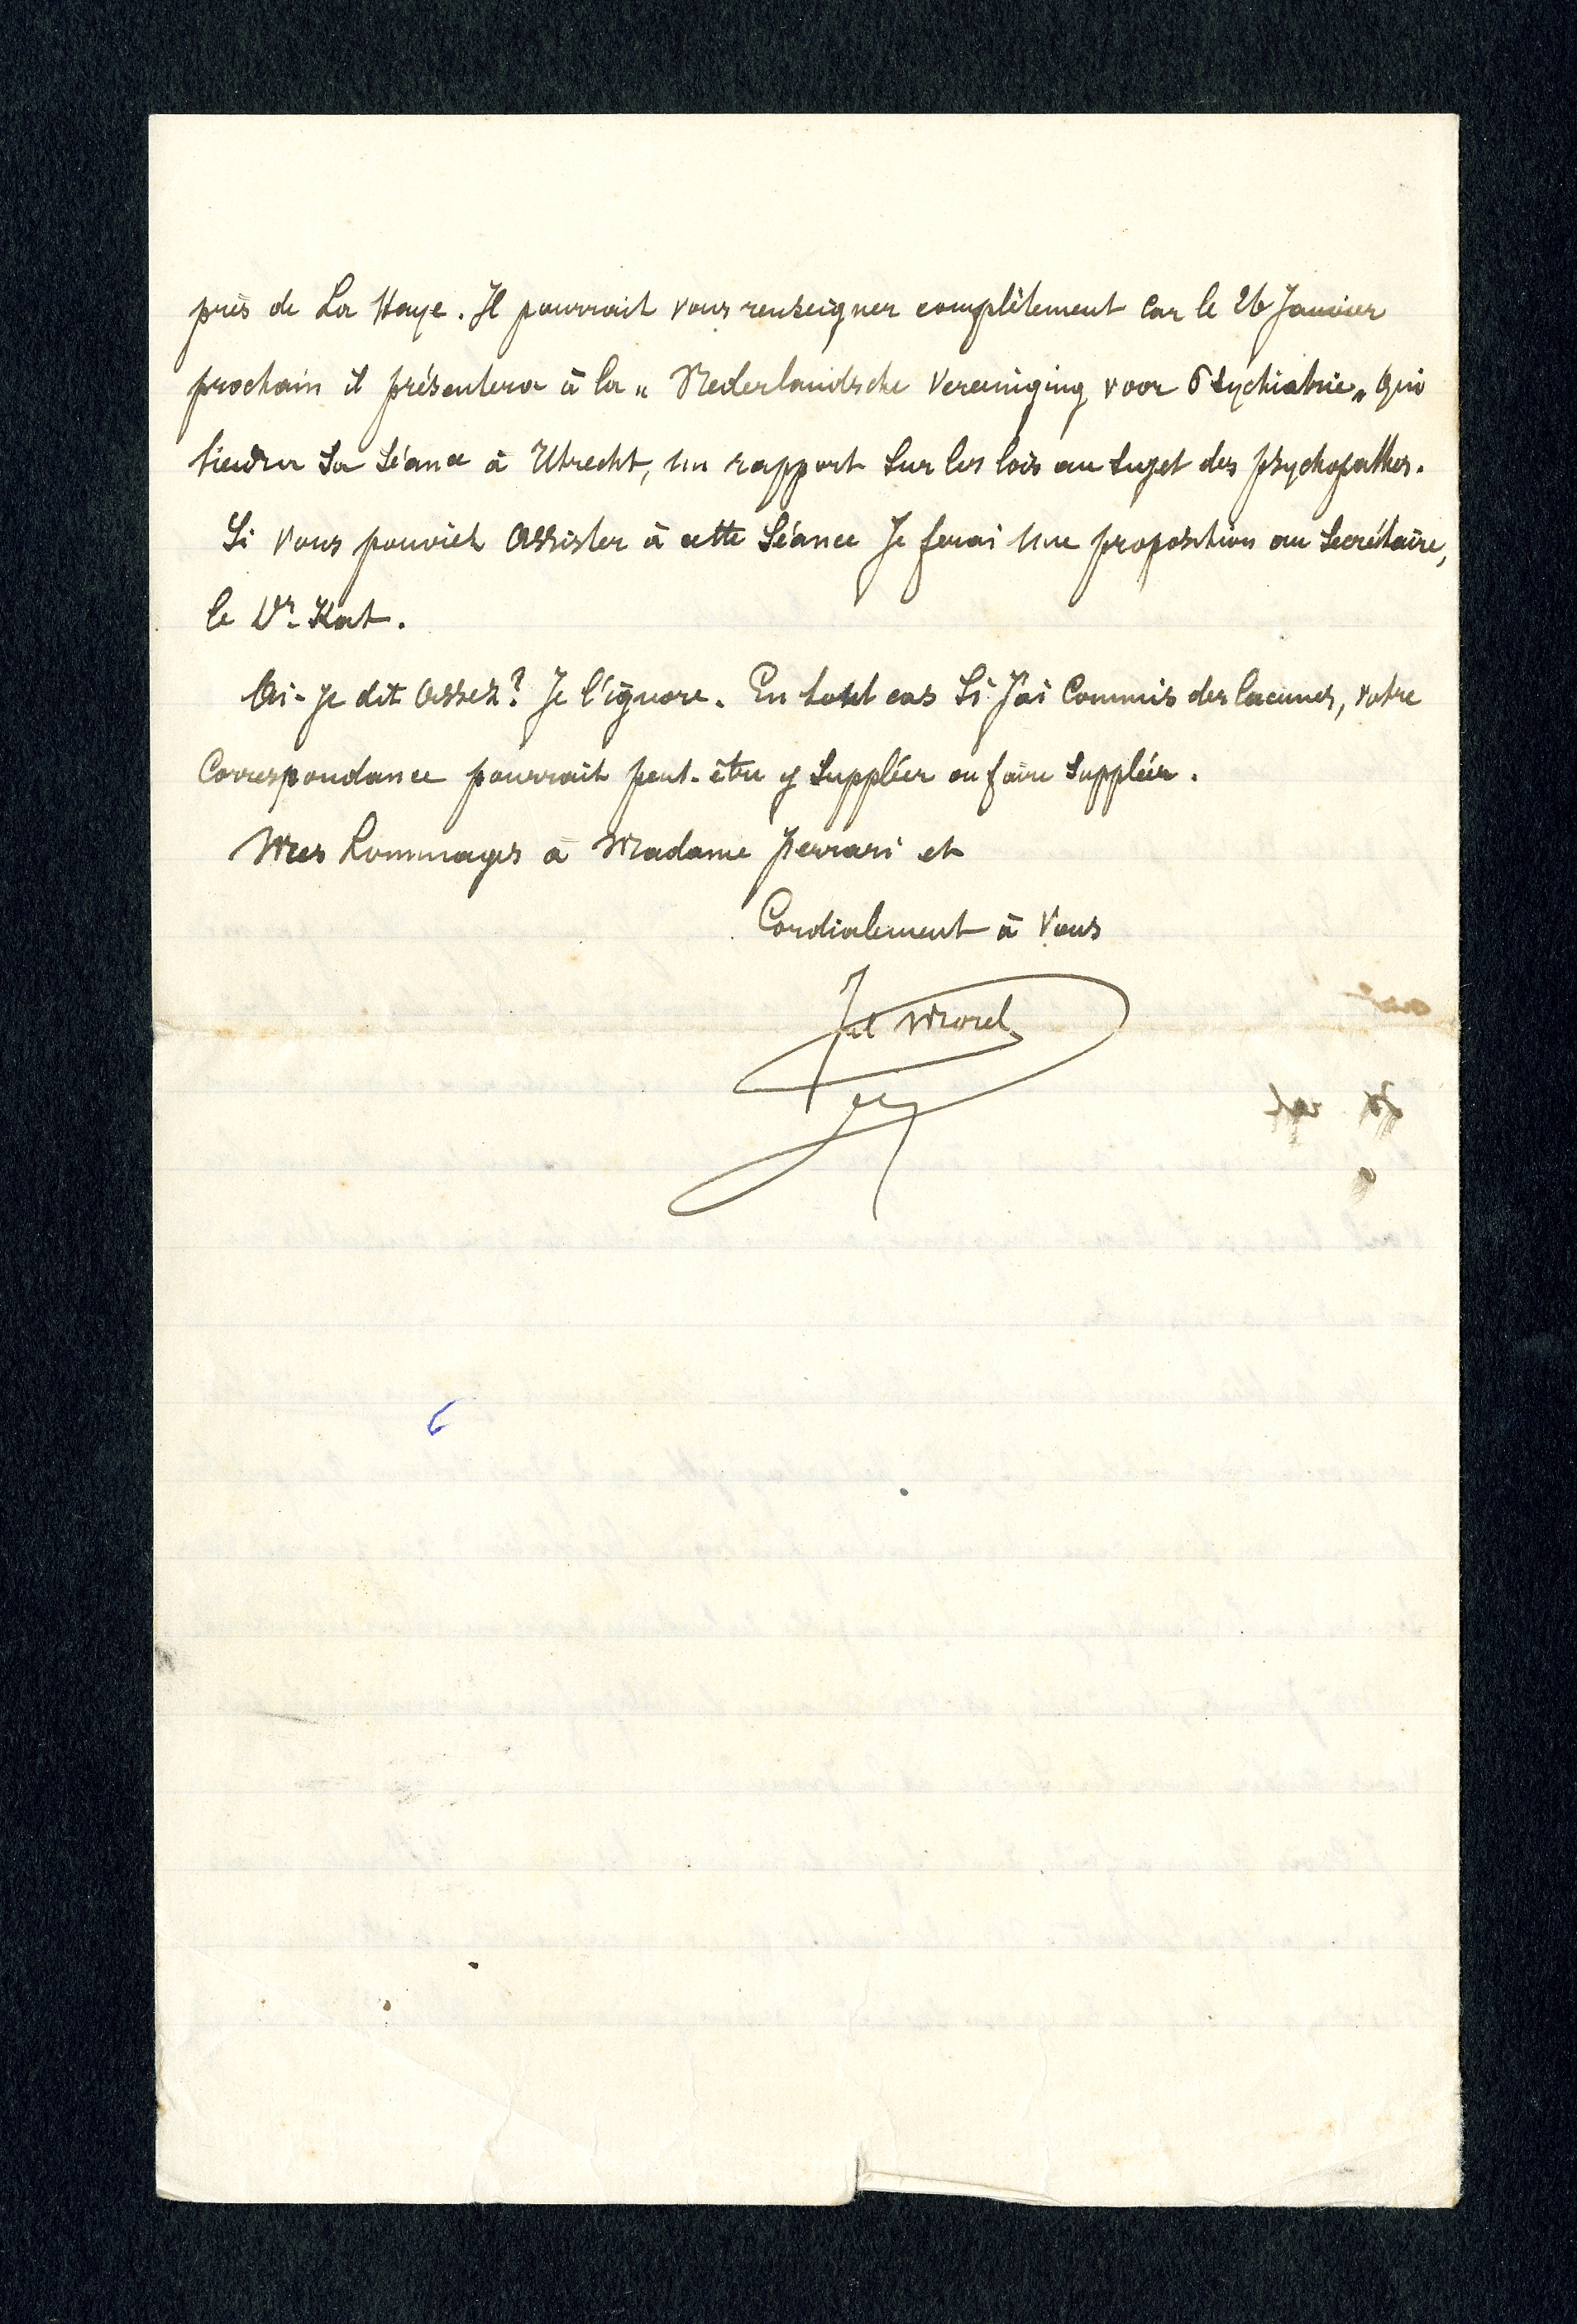 près de La Haye. Il pourrait vous renseigner complètement car le 26 Janvier
prochain il présentera à la „ Nederlandsche Vereeniging voor Psychiatrie„ qui
tiendra sa séance à Utrecht, un rapport sur les lois au sujet des psychopathes.
Si vous pouviez assister à cette séance je ferai une proposition au secrétaire,
le Dr. Kat.
Ai-je dit assez? Je l'ignore. En tout cas si j'ai commis des lacunes, votre
correspondance pourrait peut-être y suppléer ou faire suppléer.
Mes hommages à Madame Ferrari et
Cordialement à vous
Jul Morel
6